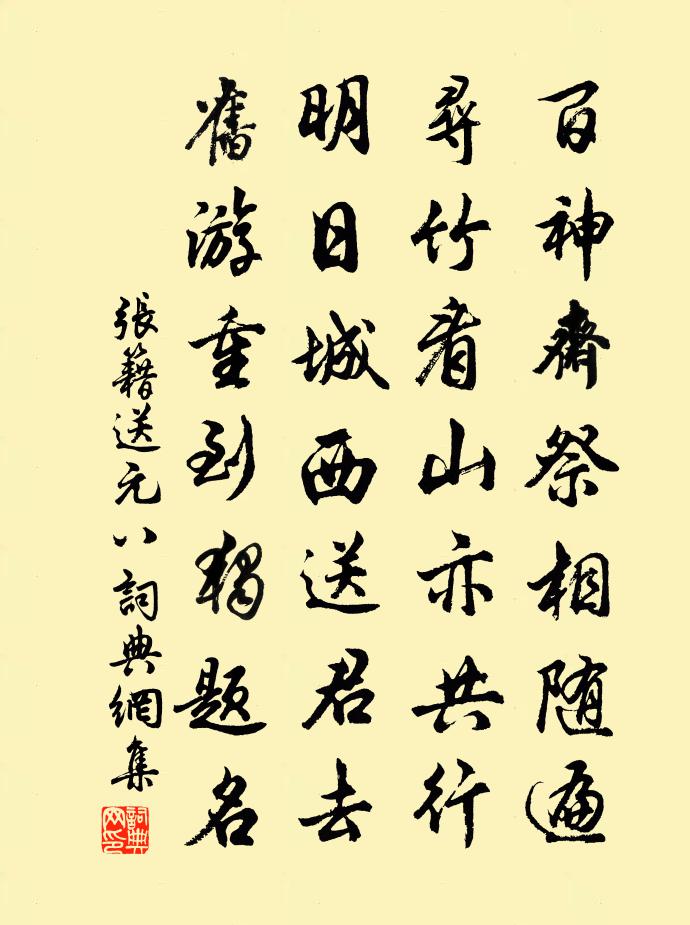 百神齋祭相随遍
尋竹看山亦共行
明日城西送君去
舊游重到獨題名
張籍送元八詞典網集
詞典網印